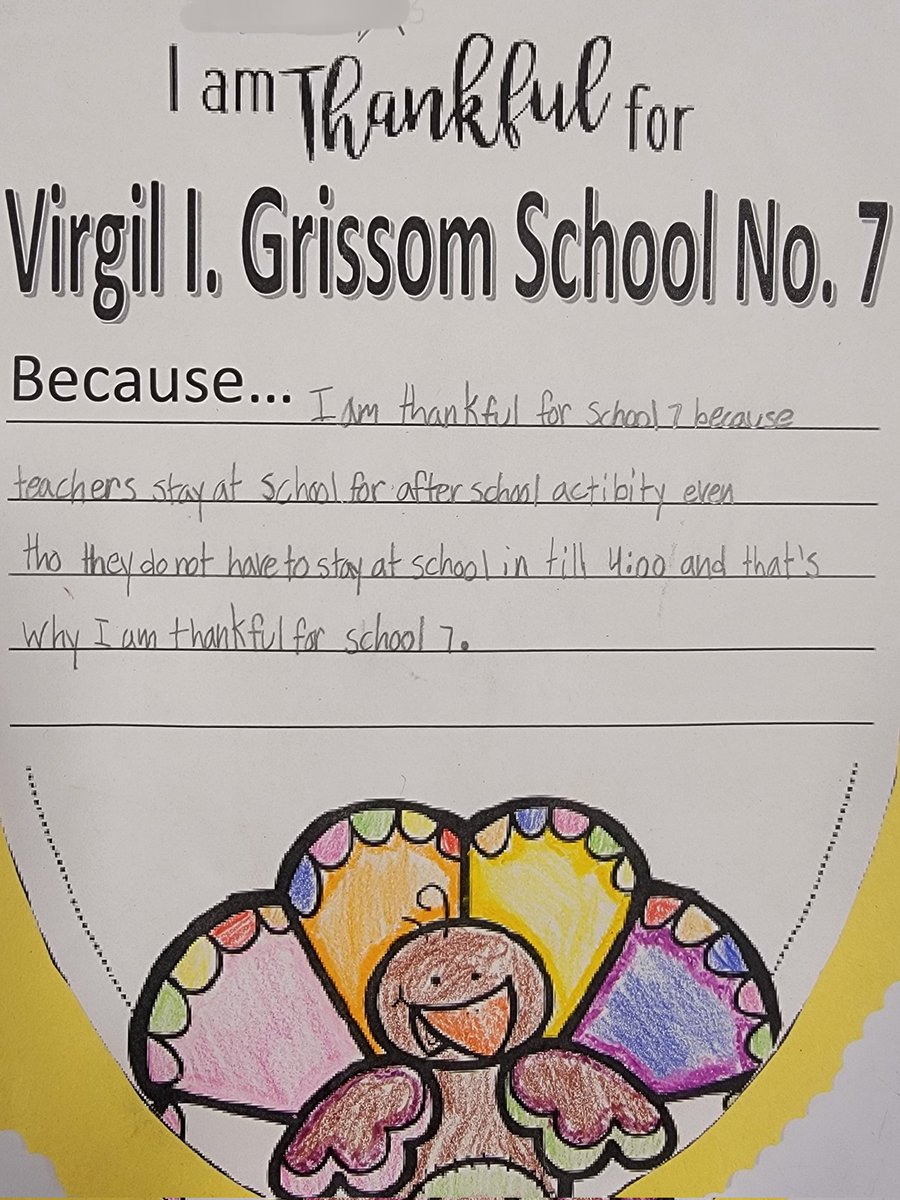 I am Thankful for
Virgil I. Grissom School No. 7
Because... I am thankful for school 7 because
teachers stay at school for after school actibity even
tho they do not have to stay at school in till 4:00 and that's
why I am thankful for school 7.